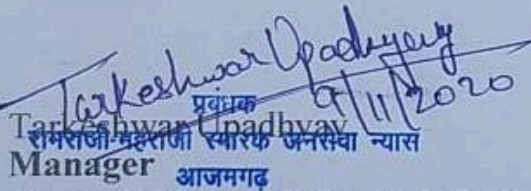 Tarkeshwar Upadhyay
9/11/2020
प्रबंधक
Tarkeshwar Upadhyay
रामराजी-महराजी स्मारक जनसेवा न्यास
Manager
आजमगढ़